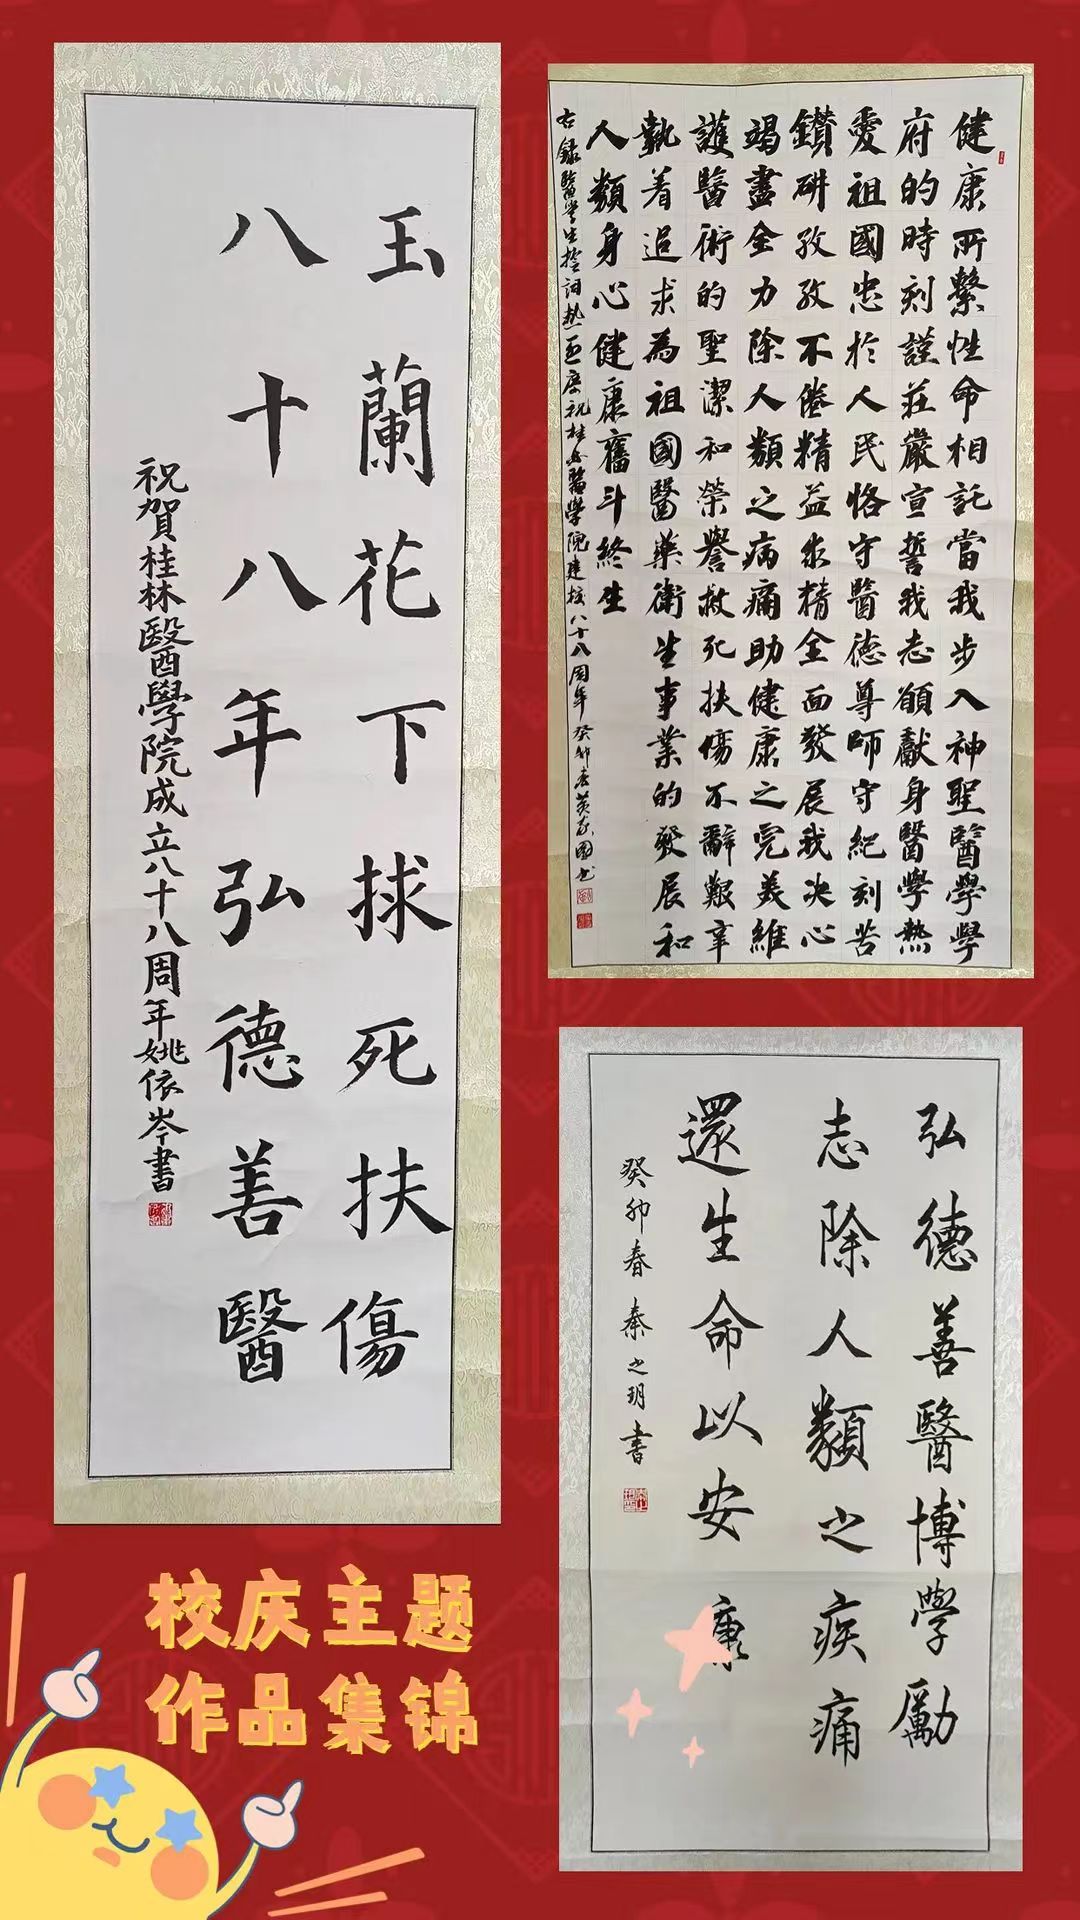 玉蘭花下捄死扶傷
八十八年弘德善醫
祝賀桂林醫學院成立八十八周年姚依岑書
健康所繫性命相託當我步入神聖醫學學
府的時刻謹莊嚴宣誓我志願獻身醫學熱
愛祖國忠於人民恪守醫德尊師守紀刻苦
鑚研孜孜不倦精益求精全面發展我決心
竭盡全力除人類之病痛助健康之完美維
護醫術的聖潔和榮譽救死扶傷不辭艱辛
執着追求為祖國醫藥衛生事業的發展和
人類身心健康奮斗終生
右錄醫學生誓詞熱烈慶祝桂林醫學院建校八十八周年癸卯春黃國書
弘德善醫博學勵
志除人類之疾痛
還生命以安康
癸卯春秦之玥書
校庆主题
作品集锦